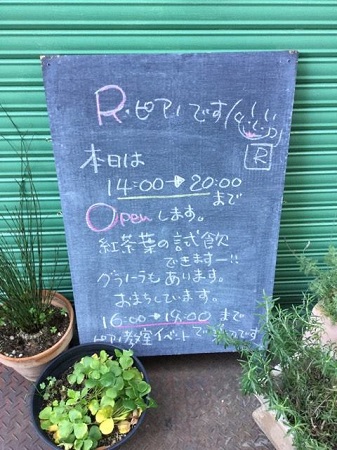 R・ピアノです
R
本日は
14:00→20:00
まで
Openします。
紅茶葉の試飲
できますー!!
グラノーラもあります。
おまちしています。
16:00→18:00まで
ピアノ教室イベントで です